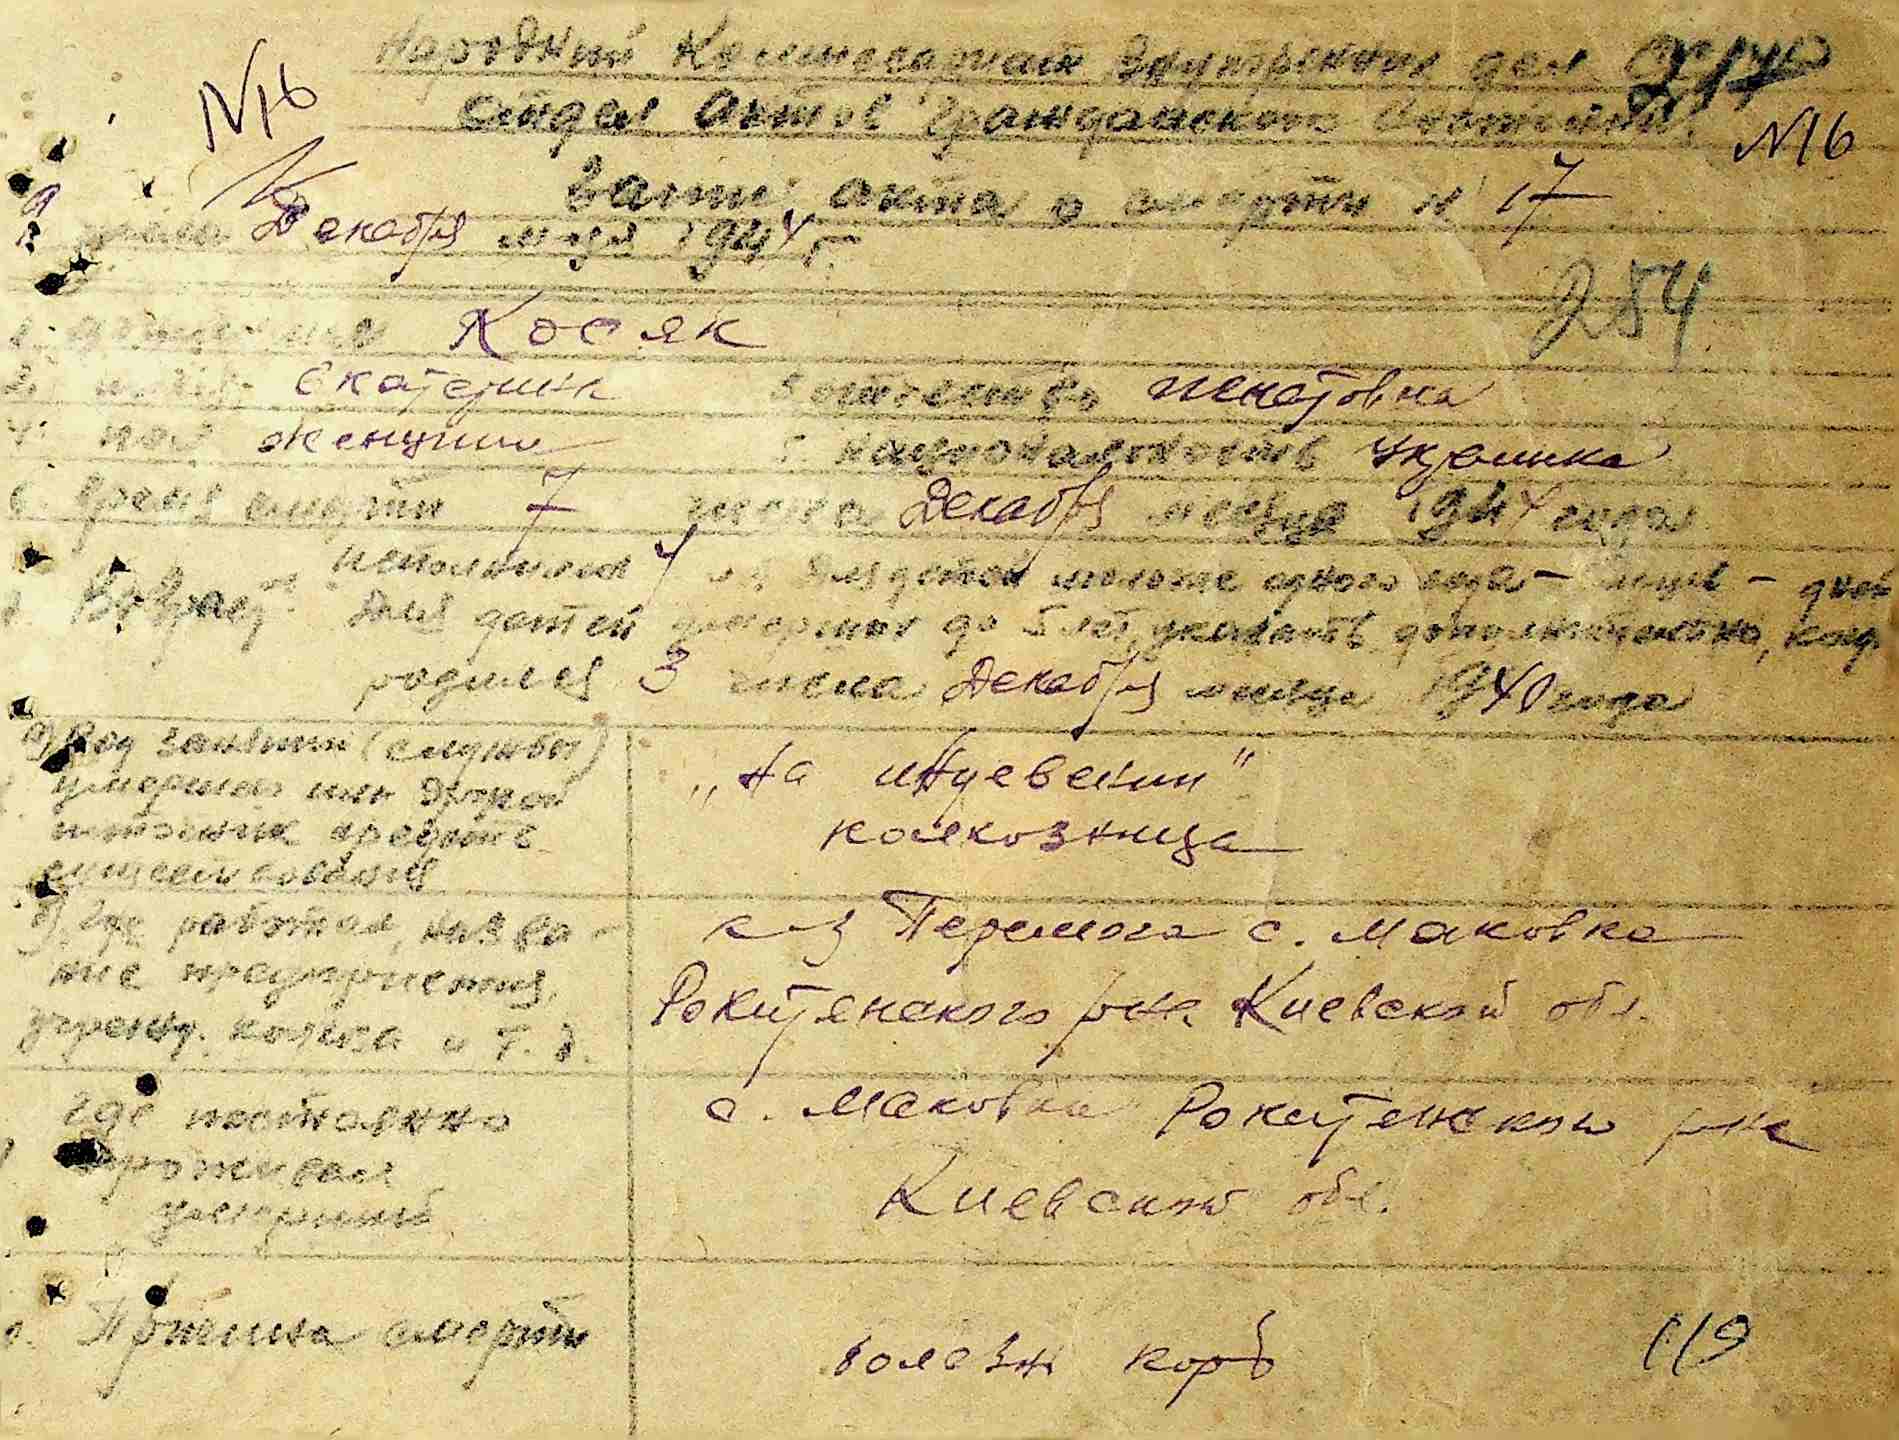 Народний Комиссариат Внутренних дел
Отдел Актов Гражданского Состояния
N16
N16
Запис акта о смерти N 17
9 числа Декабря м-ця 1944 г.
254
Косяк
Екатерина 3 отчество Игнатовна
4. пол женщина 5. национальность Украинка
6. Время смерти 7 числа Декабря месяца 1944 года
Возраст исполнилось 4 для детей моложе одного года — мцев — дней
для детей умерших до 5 лет, указать дополнительно, когда
родился 3 числа Декабря месяца 1940 года
а) Род занятий (службы)
умершего или другой
источник средств
существования
„на иждевении"
колхозница
б) Где работал, назва-
ние предприятия,
учрежд. колхоза и т. д.
к-з Перемога с. Маковка
Рокитянского р-на Киевской обл.
где постоянно
проживал
умерший
с. Маковка Рокитянского р-на
Киевской обл.
Причина смерти
болезн корь
119